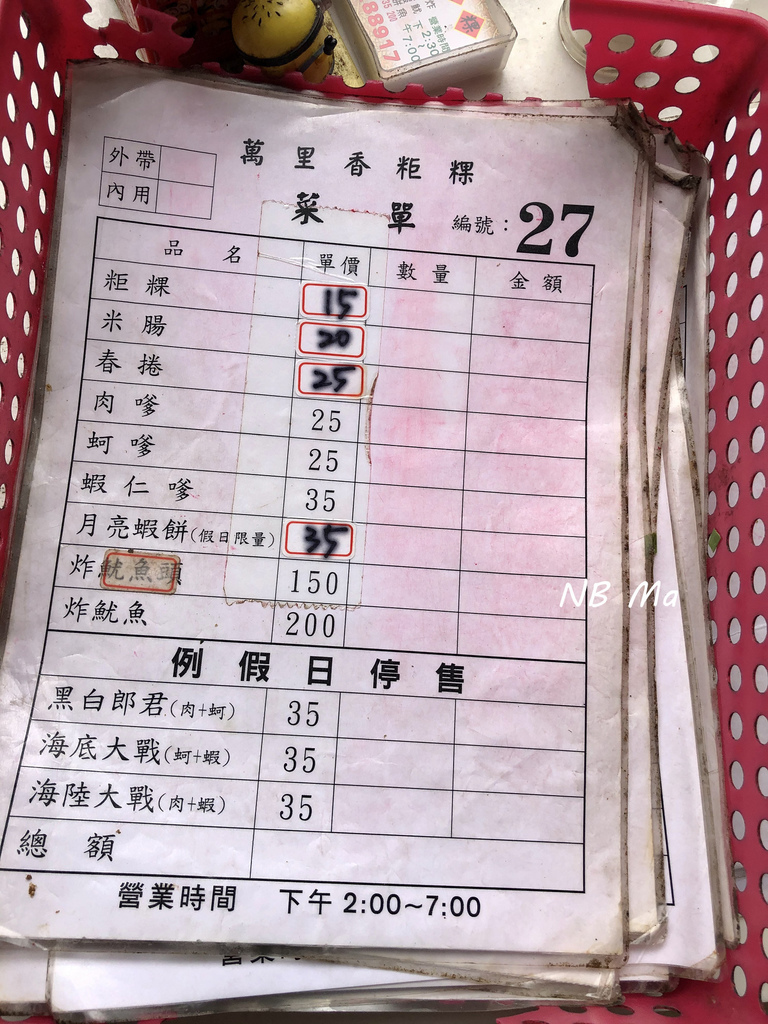 炸 營業時間
鮮 下 2:30
魚 午 7:00
88917
外帶
內用
萬里香粔粿
菜單
編號：27
品名 單價 數量 金額
粔粿 15
米腸 20
春捲 25
肉嗲 25
蚵嗲 25
蝦仁嗲 35
月亮蝦餅(假日限量) 35
炸魷魚頭 150
炸魷魚 200
例假日停售
黑白郎君(肉+蚵) 35
海底大戰(蚵+蝦) 35
海陸大戰(肉+蝦) 35
總額
營業時間 下午 2:00~7:00
NB Ma